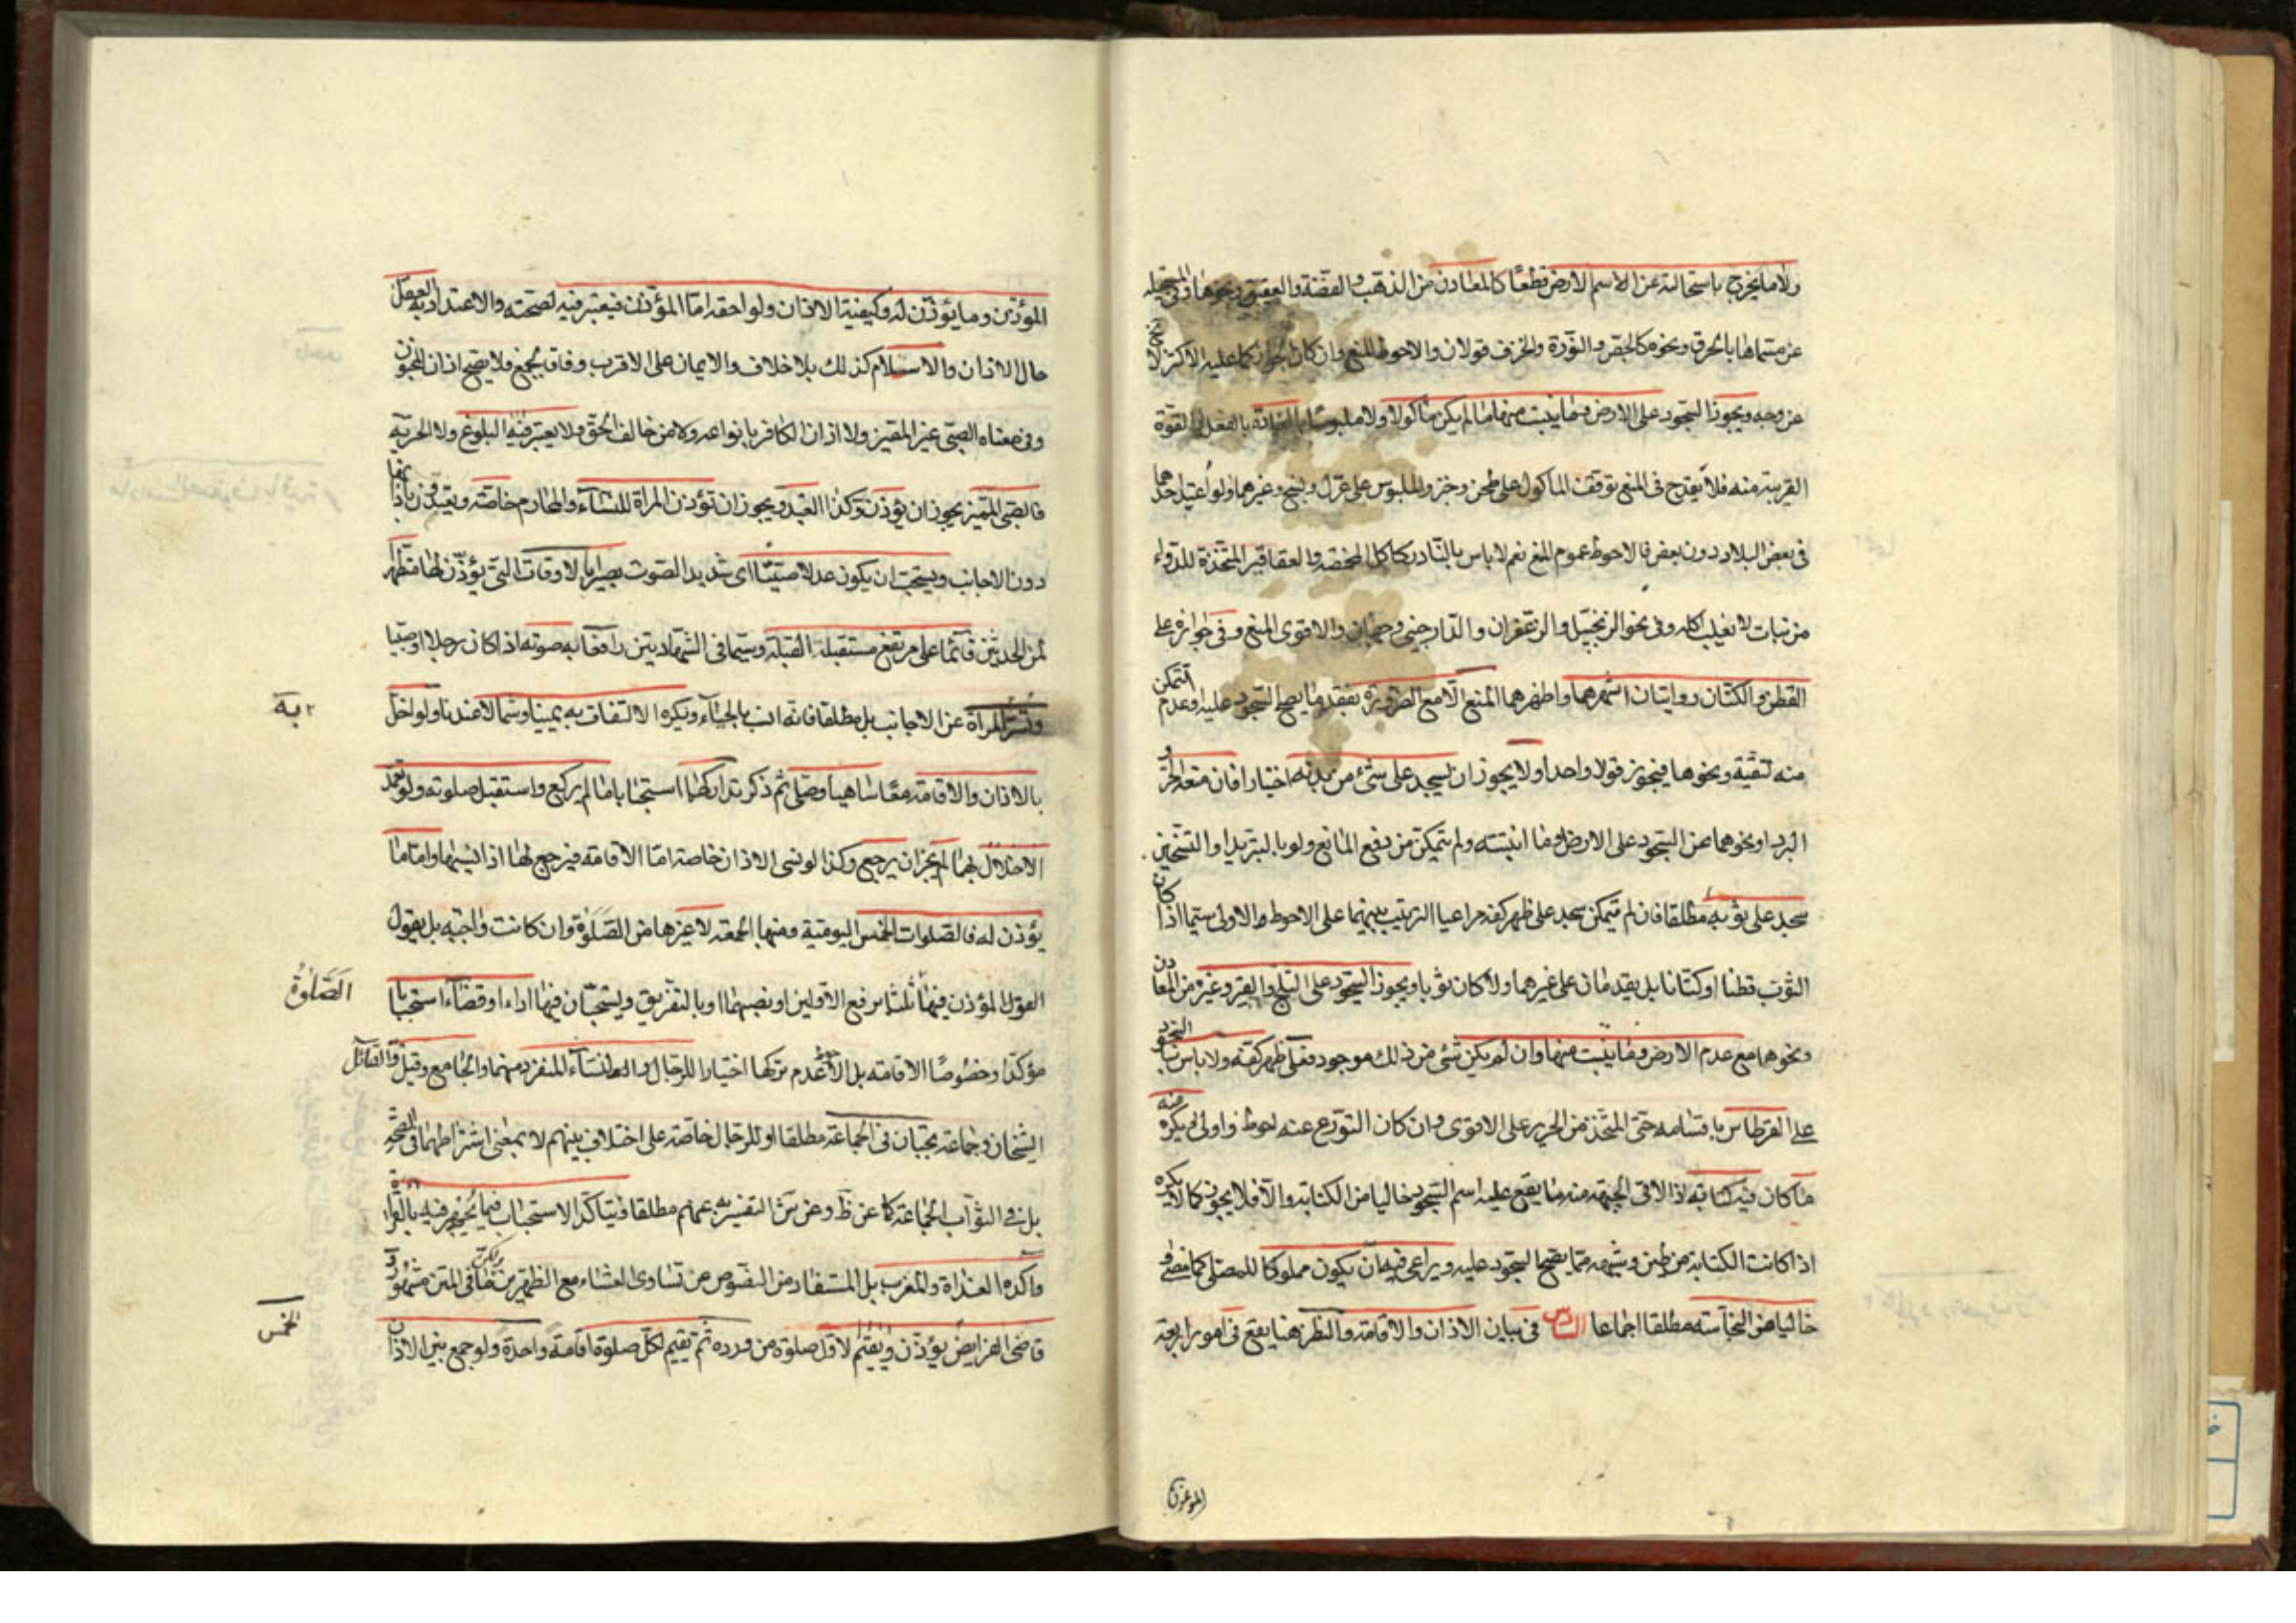 ولا ما يخرج باستحالته عن الاسم الارض قطعا كالمعادن من الذهب والفضة والعقيق ونحوها وفى المستحيله
عن مسماها بالحرق ونحوه كالجص والنورة والخزف قولان والاحوط المنع وان كان الجواز كما عليه الاكثر لا يخ
عن وجه ويجوز السجود على الارض وما ينبت منها ما لم يكن ماكولا ولا ملبوسا بالعادة بالفعل او القوة
القريبة منه فلا يقدح فى المنع توقف الماكول على طحن وخبز والملبوس على غزل ونسج وغيرهما ولو اعتيد احدهما
فى بعض البلاد دون بعض فالاحوط عموم المنع نعم لا باس بالنادر كاكل المخمصه والعقاقير المتخذة للدواء
من نبات لا يغلب اكله وفى نحو الزنجبيل والزعفران والدارچينى وجهان والاقوى المنع وفى جوازه على
القطن والكتان روايتان اشهرهما واظهرهما المنع الا مع الضرورة بفقد ما يصح السجود عليه وعدم التمكن
منه لتقية ونحوها فيجوز قولا واحدا ولا يجوز ان يسجد على شئ من بدنه اختيارا فان منعه الحر و
البرد او نحوهما عن السجود على الارض او ما انبتته ولم يتمكن من دفع المانع ولو بالتبريد او التسخين
سجد على ثوبه مطلقا فان لم يتمكن سجد على ظهر كفه مراعيا الترتيب بينهما على الاحوط والاولى سيما اذا كان
الثوب قطنا او كتانا بل يقدمان على غيرهما ولو كان ثوبا ويجوز السجود على الثلج والقير وغيره من المعادن
ونحوها مع عدم الارض وما ينبت منها وان لم يكن شئ من ذلك موجود فعلى ظهر كفه ولا باس بالسجود
على القرطاس باقسامه حتى المتخذ من الحرير على الاقوى وان كان التورع عنه احوط واولى ويكره منه
ما كان فيه كتابة اذا لاقى الجبهة منه ما يقع عليه اسم السجود خاليا من الكتابة والا فلا يجوز كما لا يكره
اذا كانت الكتابة من طين وشبهه مما يصح السجود عليه ويراعى فيه ان يكون مملوكا للمصلى كما مضى و
خاليا من النجاسة مطلقا اجماعا السادس فى بيان الاذان والاقامة والنظر هنا يقع فى امور اربعة
الموذن
المؤذن وما يؤذن له وكيفية الاذان ولواحقه اما المؤذن فيعتبر فيه لصحته والاعتداد به العقل
حال الاذان والاسلام كذلك بلا خلاف والايمان على الاقرب وفاق لجمع ولا يصح اذان المجنون
وفى معناه الصبى غير المميز ولا اذان الكافر بانواعه ولا من خالف الحق ولا يعتبر فيه البلوغ ولا الحرية
فالصبى المميز يجوز ان يؤذن وكذا العبد ويجوز ان تؤذن المراة للنساء والمحارم خاصة ويعتدون باذانها
دون الاجانب ويستحب ان يكون عدلا صيتا اى شديد الصوت بصيرا بالاوقات التى يؤذن لها متطهرا
من الحدثين قائما على مرتفع مستقبل القبلة وسيما فى الشهادتين رافعا به صوته اذا كان رجلا او صبيا
وتسر المراة عن الاجانب بل مطلقا فانه انسب بالحياء ويكره الالتفات به يمينا وشمالا عندنا ولو اخل
به
بالاذان والاقامة معا ساهيا وصلى ثم ذكر تداركهما استحبابا ما لم يركع واستقبل صلوته ولو تعمد
الاخلال بهما لم يجز ان يرجع وكذا لو نسى الاذان خاصة اما الاقامة فيرجع لها اذا نسيها واما ما
يؤذن له فالصلوات الخمس اليومية ومنها الجمعة لا غيرها من الصلوة وان كانت واجبه بل يقول
المؤذن فيها ثلثا برفع الاولين او نصبهما او بالتفريق ويستحبان فيها اداء وقضاء استحبابا
الصلوة
مؤكدا وخصوصا الاقامة بل الاحوط عدم تركها اختيارا للرجال والنساء المنفرد منهم والجامع وقيل والقائل
الشيخان وجماعة يجبان فى الجماعة مطلقا او للرجال خاصة على اختلاف بينهم لا بمعنى اشتراطهما فى الصحة
بل فى الثواب الجماعة كما عن ط وعن التفسير به عنهم مطلقا ويتاكد الاستحباب فيما يجهر فيه بالقراءة
واكده الغداة والمغرب بل المستفاد من النصوص من تساوى العشاء مع الظهرين فى المتن مشهور و
قاضى الفرايض يؤذن ويقيم لاول صلوة من ورده ثم يقيم لكل صلوة اقامة واحدة ولو جمع بين الاذان
الخمس